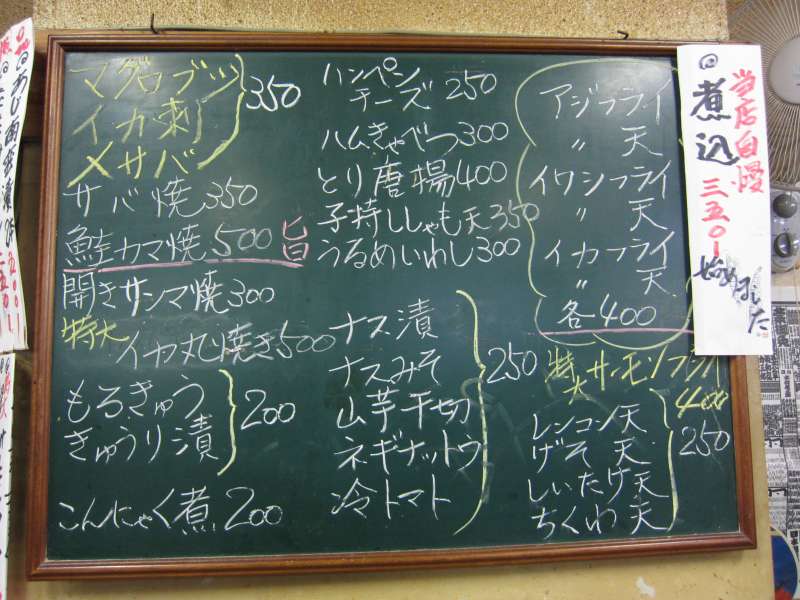 マグロブツ
イカ刺
〆サバ
350
サバ焼 350
鮭カマ焼 500 旨
開きサンマ焼 300
特大
イカ丸焼き 500
もろきゅう
きゅうり漬
200
こんにゃく煮 200
ハンペン
チーズ 250
ハムきゃべつ 300
とり唐揚 400
子持ししゃも天 350
うるめいわし 300
ナス漬
ナスみそ
山芋千切
ネギナットウ
冷トマト
250
アジフライ
〃 天
イワシフライ
〃 天
イカフライ
〃 天
各400
特大サーモンフライ
400
レンコン天
げそ天
しいたけ天
ちくわ天
250
当店自慢
煮込 三五〇
始めました